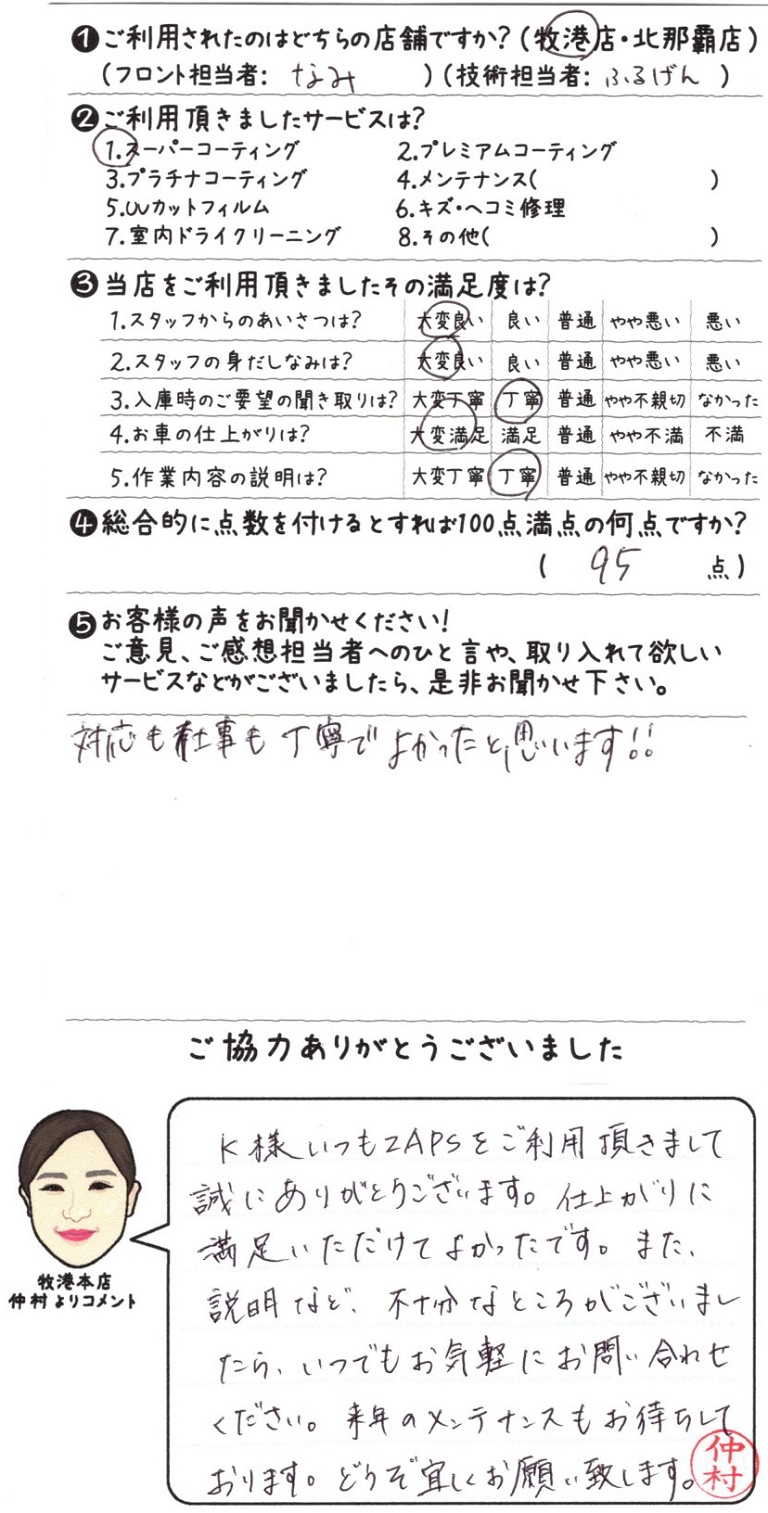 ❶ご利用されたのはどちらの店舗ですか?(牧港店・北那覇店)
(フロント担当者: なみ )(技術担当者: ふるげん )
❷ご利用頂きましたサービスは?
1.スーパーコーティング 2.プレミアムコーティング
3.プラチナコーティング 4.メンテナンス( )
5.UVカットフィルム 6.キズ・ヘコミ修理
7.室内ドライクリーニング 8.その他( )
❸当店をご利用頂きましたその満足度は?
1.スタッフからのあいさつは? 大変良い 良い 普通 やや悪い 悪い
2.スタッフの身だしなみは? 大変良い 良い 普通 やや悪い 悪い
3.入庫時のご要望の聞き取りは? 大変丁寧 丁寧 普通 やや不親切 なかった
4.お車の仕上がりは? 大変満足 満足 普通 やや不満 不満
5.作業内容の説明は? 大変丁寧 丁寧 普通 やや不親切 なかった
❹総合的に点数を付けるとすれば100点満点の何点ですか?
( 95 点)
❺お客様の声をお聞かせください!
ご意見、ご感想担当者へのひと言や、取り入れて欲しい
サービスなどがございましたら、是非お聞かせ下さい。
対応も仕事も丁寧でよかったと思います!!
ご協力ありがとうございました
K様いつもZAPSをご利用頂きまして
誠にありがとうございます。仕上がりに
満足いただけてよかったです。また、
説明など、不十分なところがございまし
たら、いつでもお気軽にお問い合わせ
ください。来年のメンテナンスもお待ちして
おります。どうぞ宜しくお願い致します。
仲村
牧港本店
仲村よりコメント